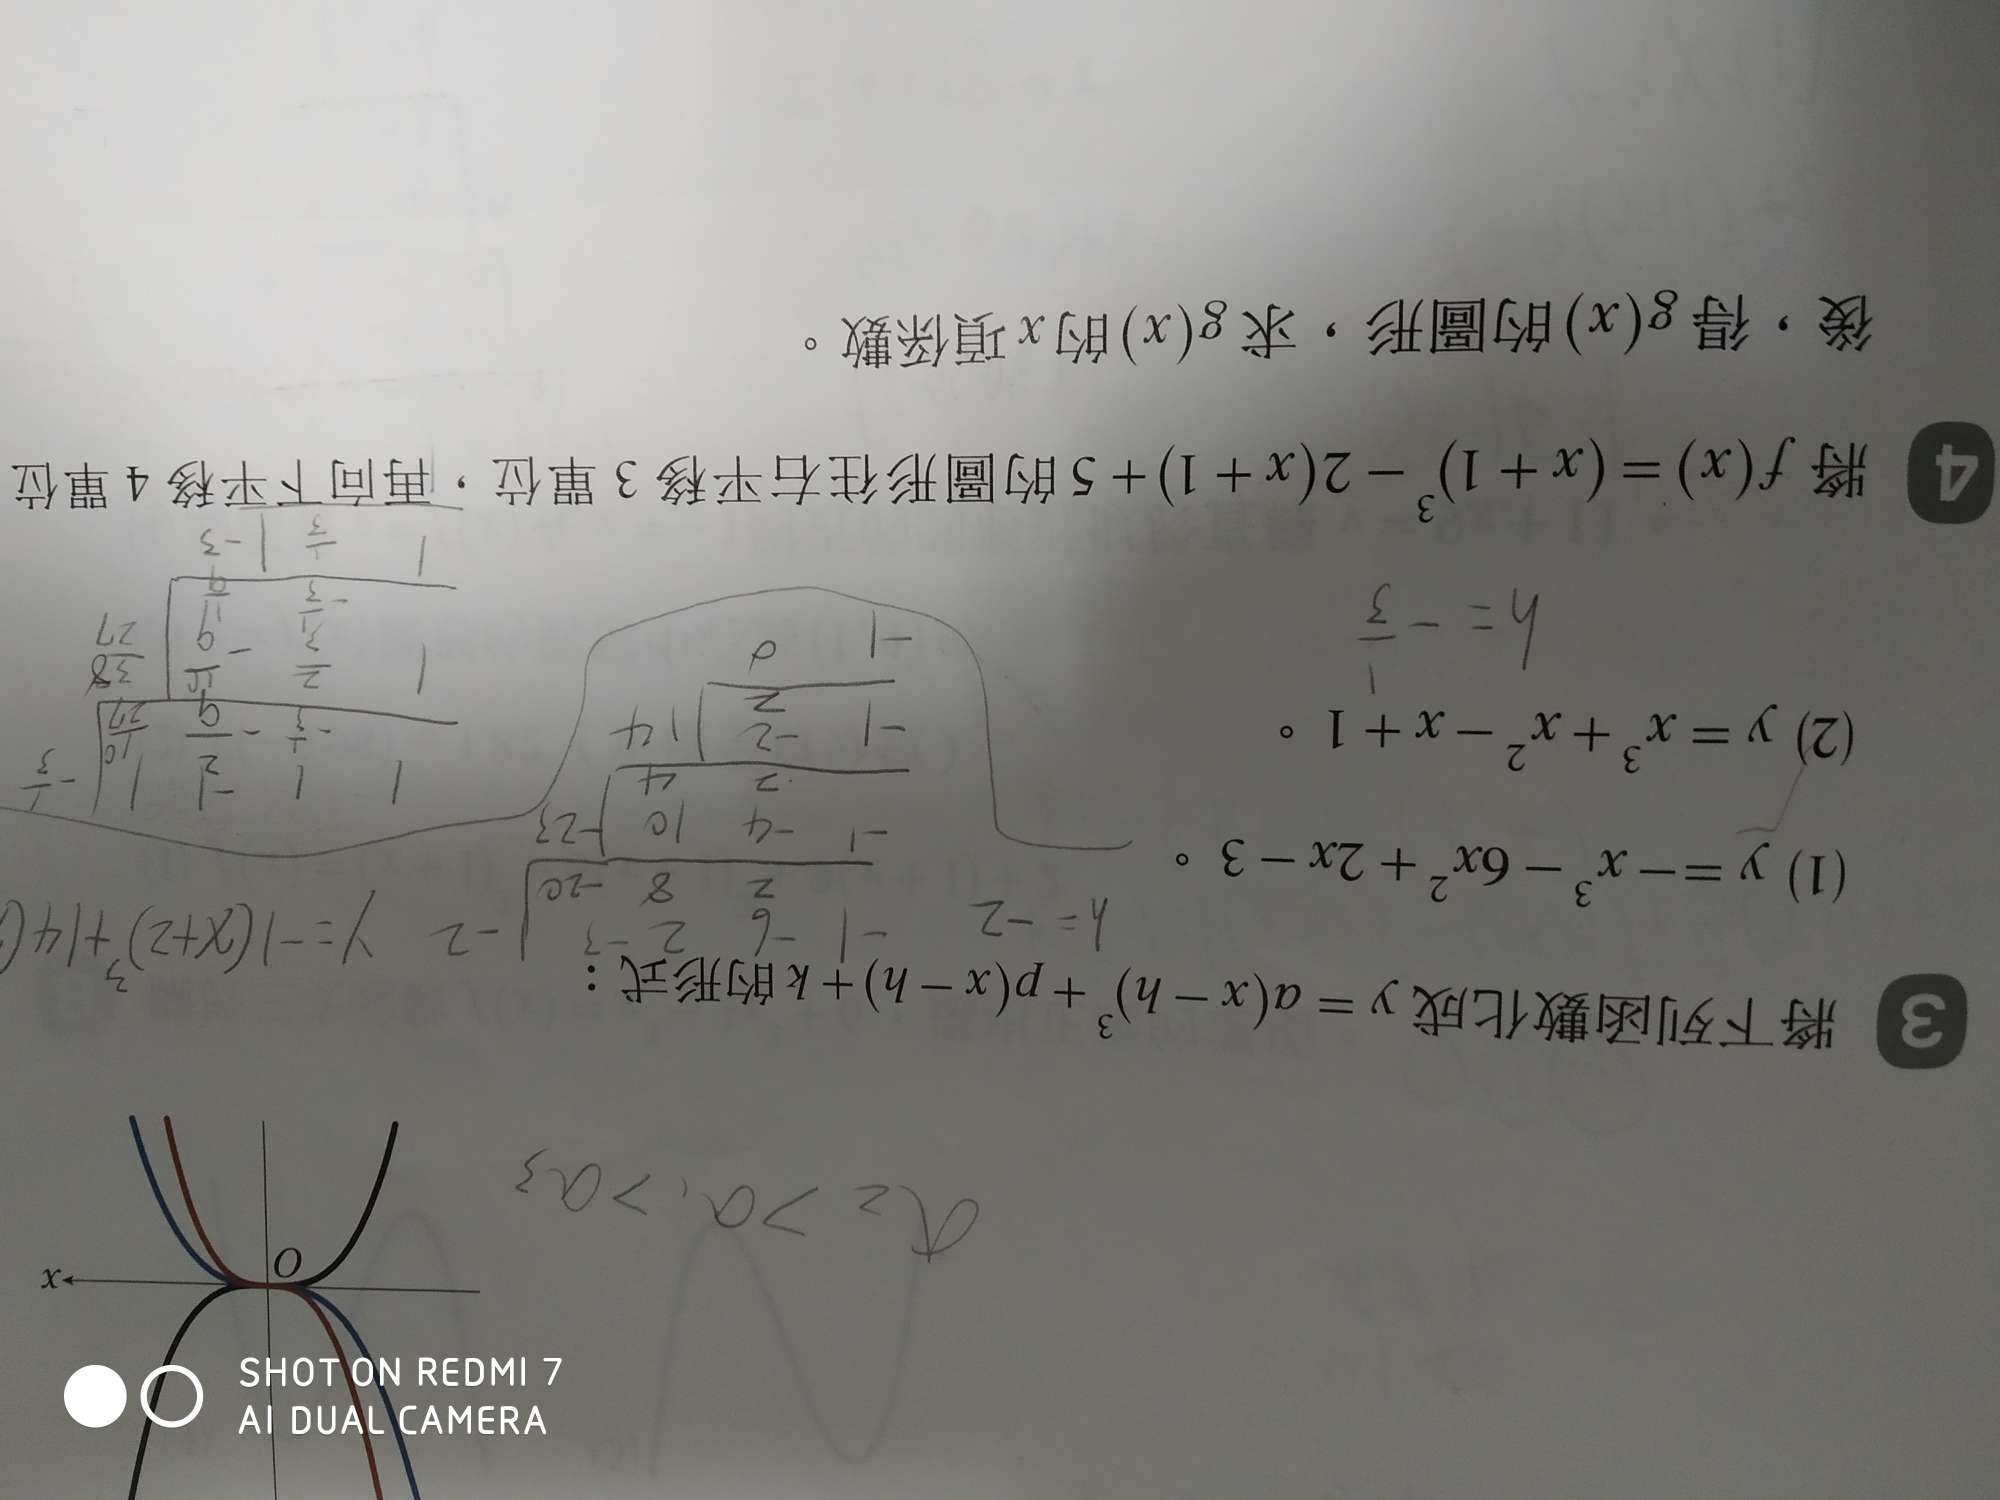 O
x
a₂ > a₁ > a₃
3 將下列函數化成 y = a(x − h)³ + p(x − h) + k 的形式：
(1) y = −x³ − 6x² + 2x − 3。
h = −2
−1 −6 2 −3 | −2
2 8 −20
−1 −4 10 | −23
2 4
−1 −2 | 14
2
−1 0
y = −1(x+2)³ + 14(
(2) y = x³ + x² − x + 1。
h = −1/3
1 1 −1 1 | −1/3
−1/3 −2/9 10/27
1 2/3 −10/9 | 38/27
−1/3
1 1/3
4 將 f(x) = (x + 1)³ − 2(x + 1) + 5 的圖形往右平移 3 單位，再向下平移 4 單位
後，得 g(x) 的圖形，求 g(x) 的 x 項係數。
SHOT ON REDMI 7
AI DUAL CAMERA